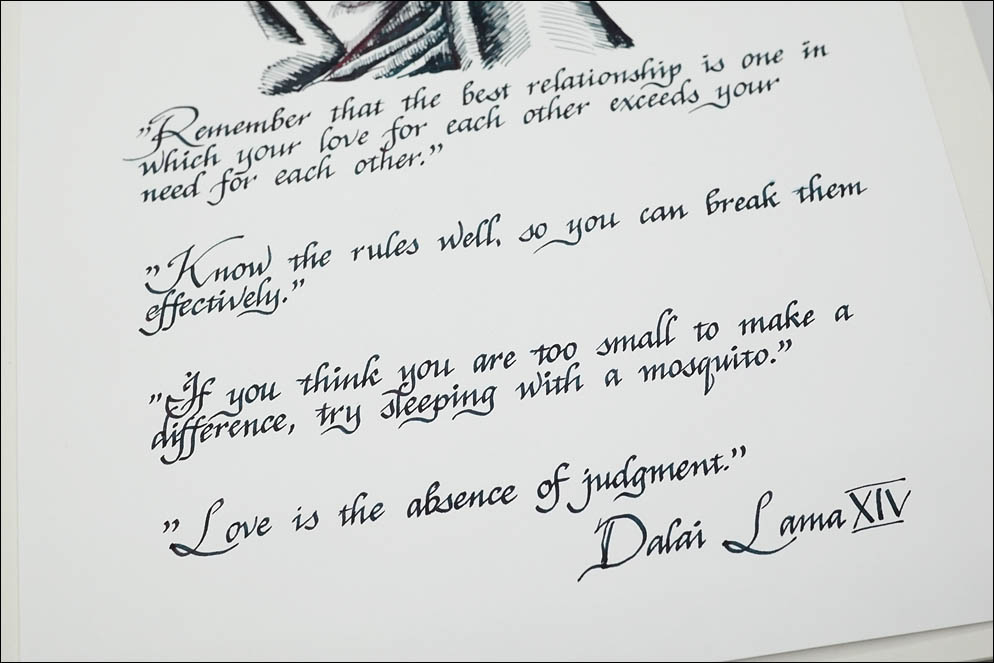 ”Remember that the best relationship is one in
which your love for each other exceeds your
need for each other.”
”Know the rules well, so you can break them
effectively.”
”If you think you are too small to make a
difference, try sleeping with a mosquito.”
”Love is the absence of judgment.”
Dalai Lama XIV